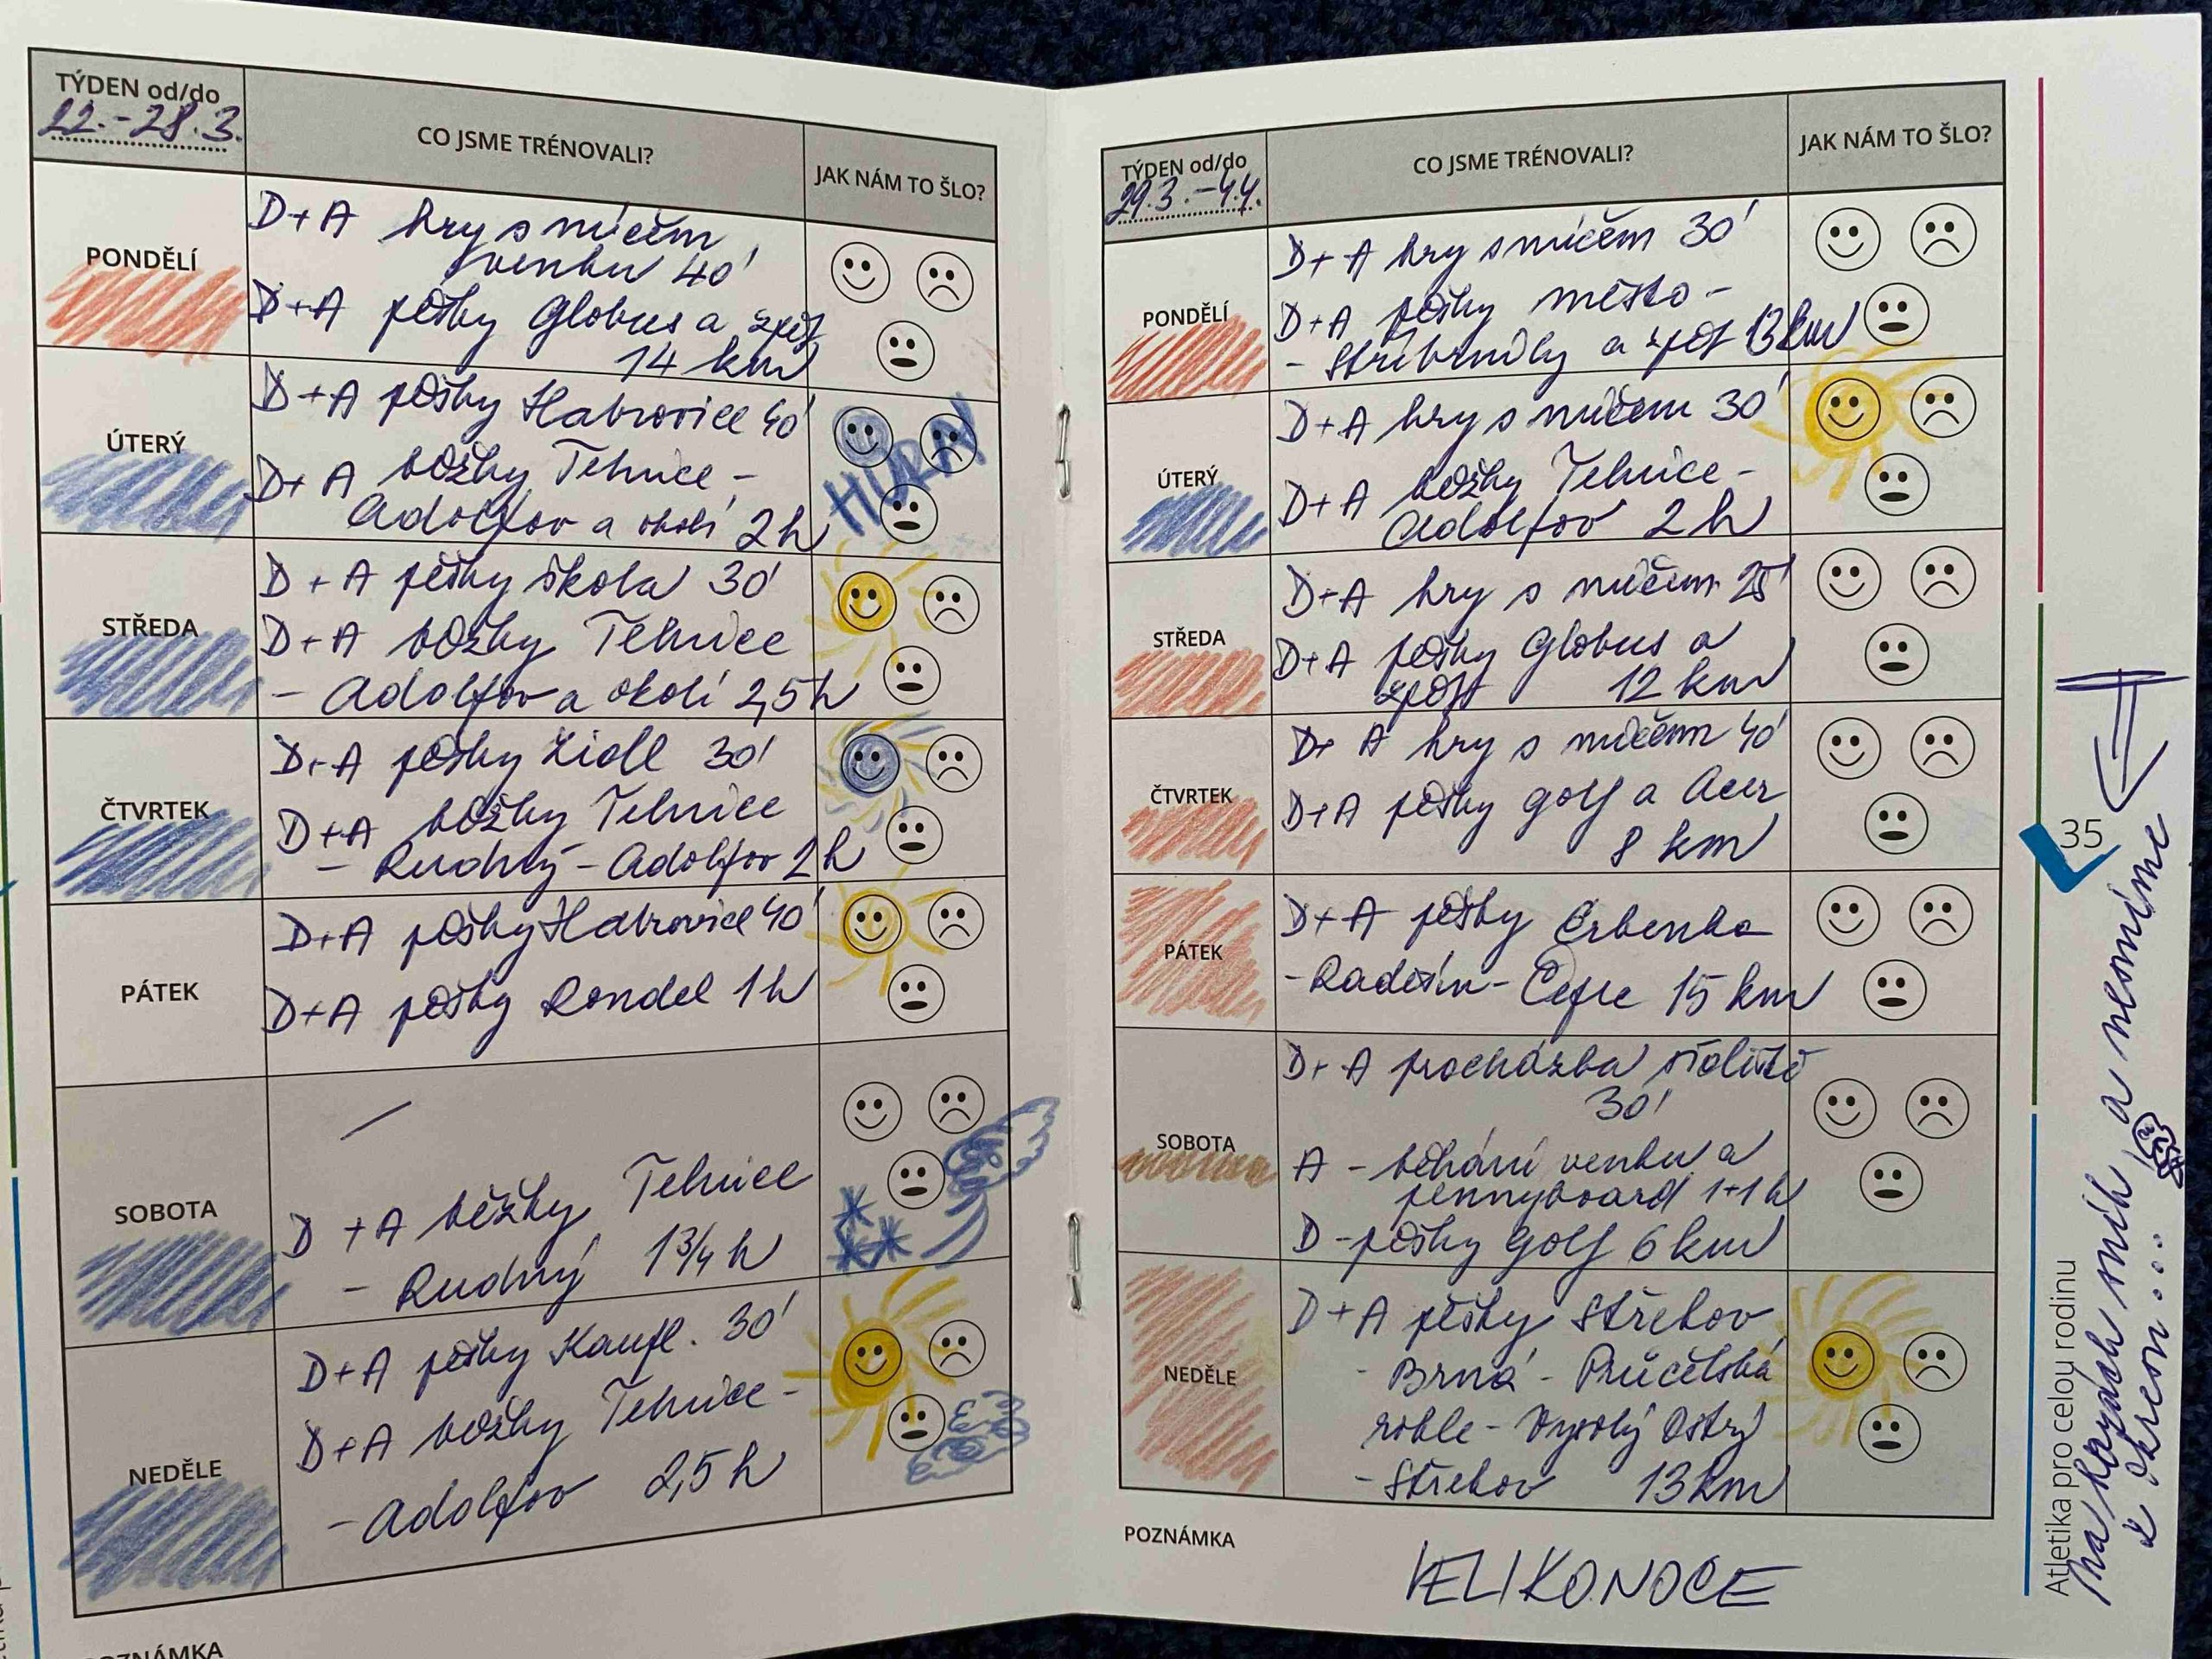 TÝDEN od/do
22.-28.3.
CO JSME TRÉNOVALI?
JAK NÁM TO ŠLO?
PONDĚLÍ
D+A hry s míčem
venku 40'
D+A pěšky Globus a zpět
14 km
ÚTERÝ
D+A pěšky Habrovice 40'
D+A běžky Telnice -
Adolfov a okolí 2h
HURÁ!
STŘEDA
D+A pěšky škola 30'
D+A běžky Telnice
- Adolfov a okolí 2,5h
ČTVRTEK
D+A pěšky Lidl 30'
D+A běžky Telnice
- Rudný - Adolfov 2h
PÁTEK
D+A pěšky Habrovice 40'
D+A pěšky Rondel 1h
SOBOTA
D+A běžky Telnice
- Rudný 1 3/4 h
NEDĚLE
D+A pěšky Kaufl. 30'
D+A běžky Telnice -
- Adolfov 2,5h
POZNÁMKA
TÝDEN od/do
29.3.-4.4.
CO JSME TRÉNOVALI?
JAK NÁM TO ŠLO?
PONDĚLÍ
D+A hry s míčem 30'
D+A pěšky město -
- Stříbrníky a zpět 13km
ÚTERÝ
D+A hry s míčem 30'
D+A běžky Telnice -
Adolfov 2h
STŘEDA
D+A hry s míčem 25'
D+A pěšky Globus a
zpět 12 km
ČTVRTEK
D+A hry s míčem 40'
D+A pěšky golf a Acer
8 km
PÁTEK
D+A pěšky Erbenka
- Radešín - 15 km
SOBOTA
D+A procházka sídliště
30'
A - běhání venku a
pennyboard 1+1h
D - pěšky golf 6km
NEDĚLE
D+A pěšky Střekov
- Brná - Průčelská
rokle - Vysoký Ostrý
- Střekov 13km
POZNÁMKA
VELIKONOCE
35
Atletika pro celou rodinu
na horách sníh a nesmíme
z okresu...